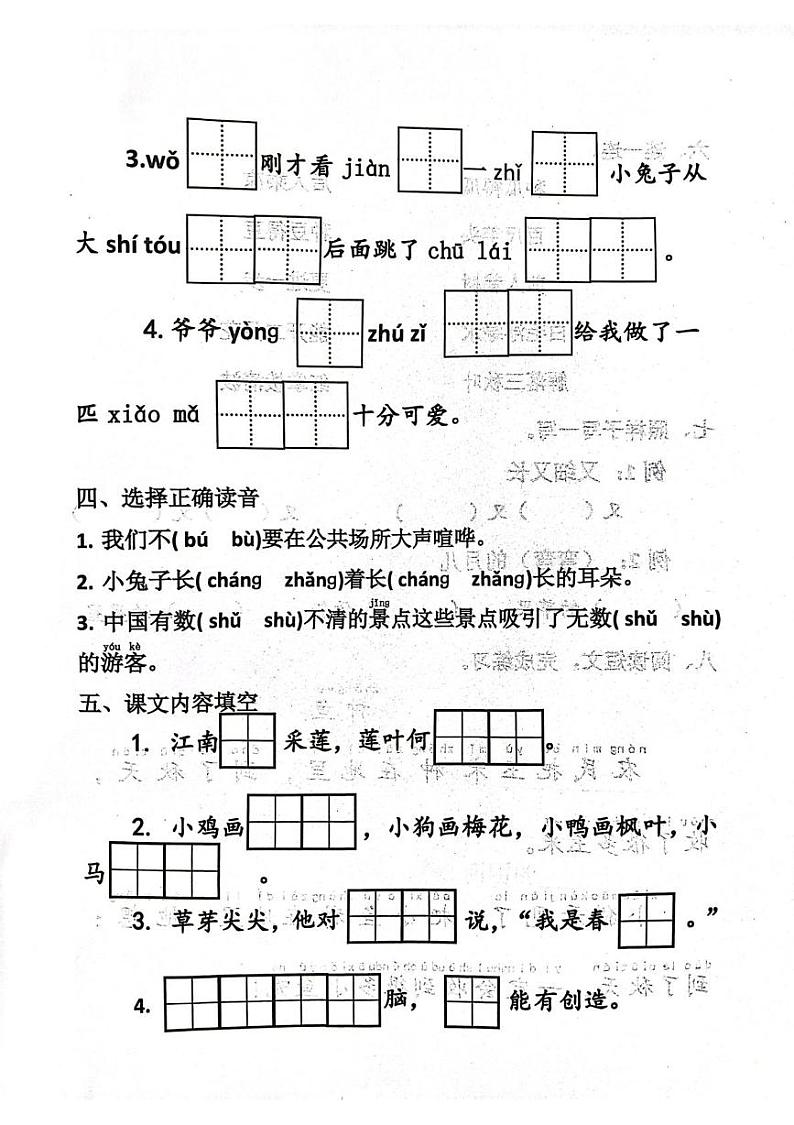 3.wǒ 刚才看 jiàn 一 zhǐ 小兔子从
大 shí tóu 后面跳了 chū lái 。
4. 爷爷 yòng zhú zǐ 给我做了一
匹 xiǎo mǎ 十分可爱。
四、选择正确读音
1. 我们不( bú bù)要在公共场所大声喧哗。
2. 小兔子长( cháng zhǎng)着长( cháng zhǎng)长的耳朵。
jǐng
3. 中国有数( shǔ shù)不清的景点这些景点吸引了无数( shǔ shù)
yóu kè
的游客。
五、课文内容填空
1. 江南 采莲，莲叶何 。
2. 小鸡画 ，小狗画梅花，小鸭画枫叶，小
马 。
3. 草芽尖尖，他对 说，“我是春 。”
4. 脑， 能有创造。